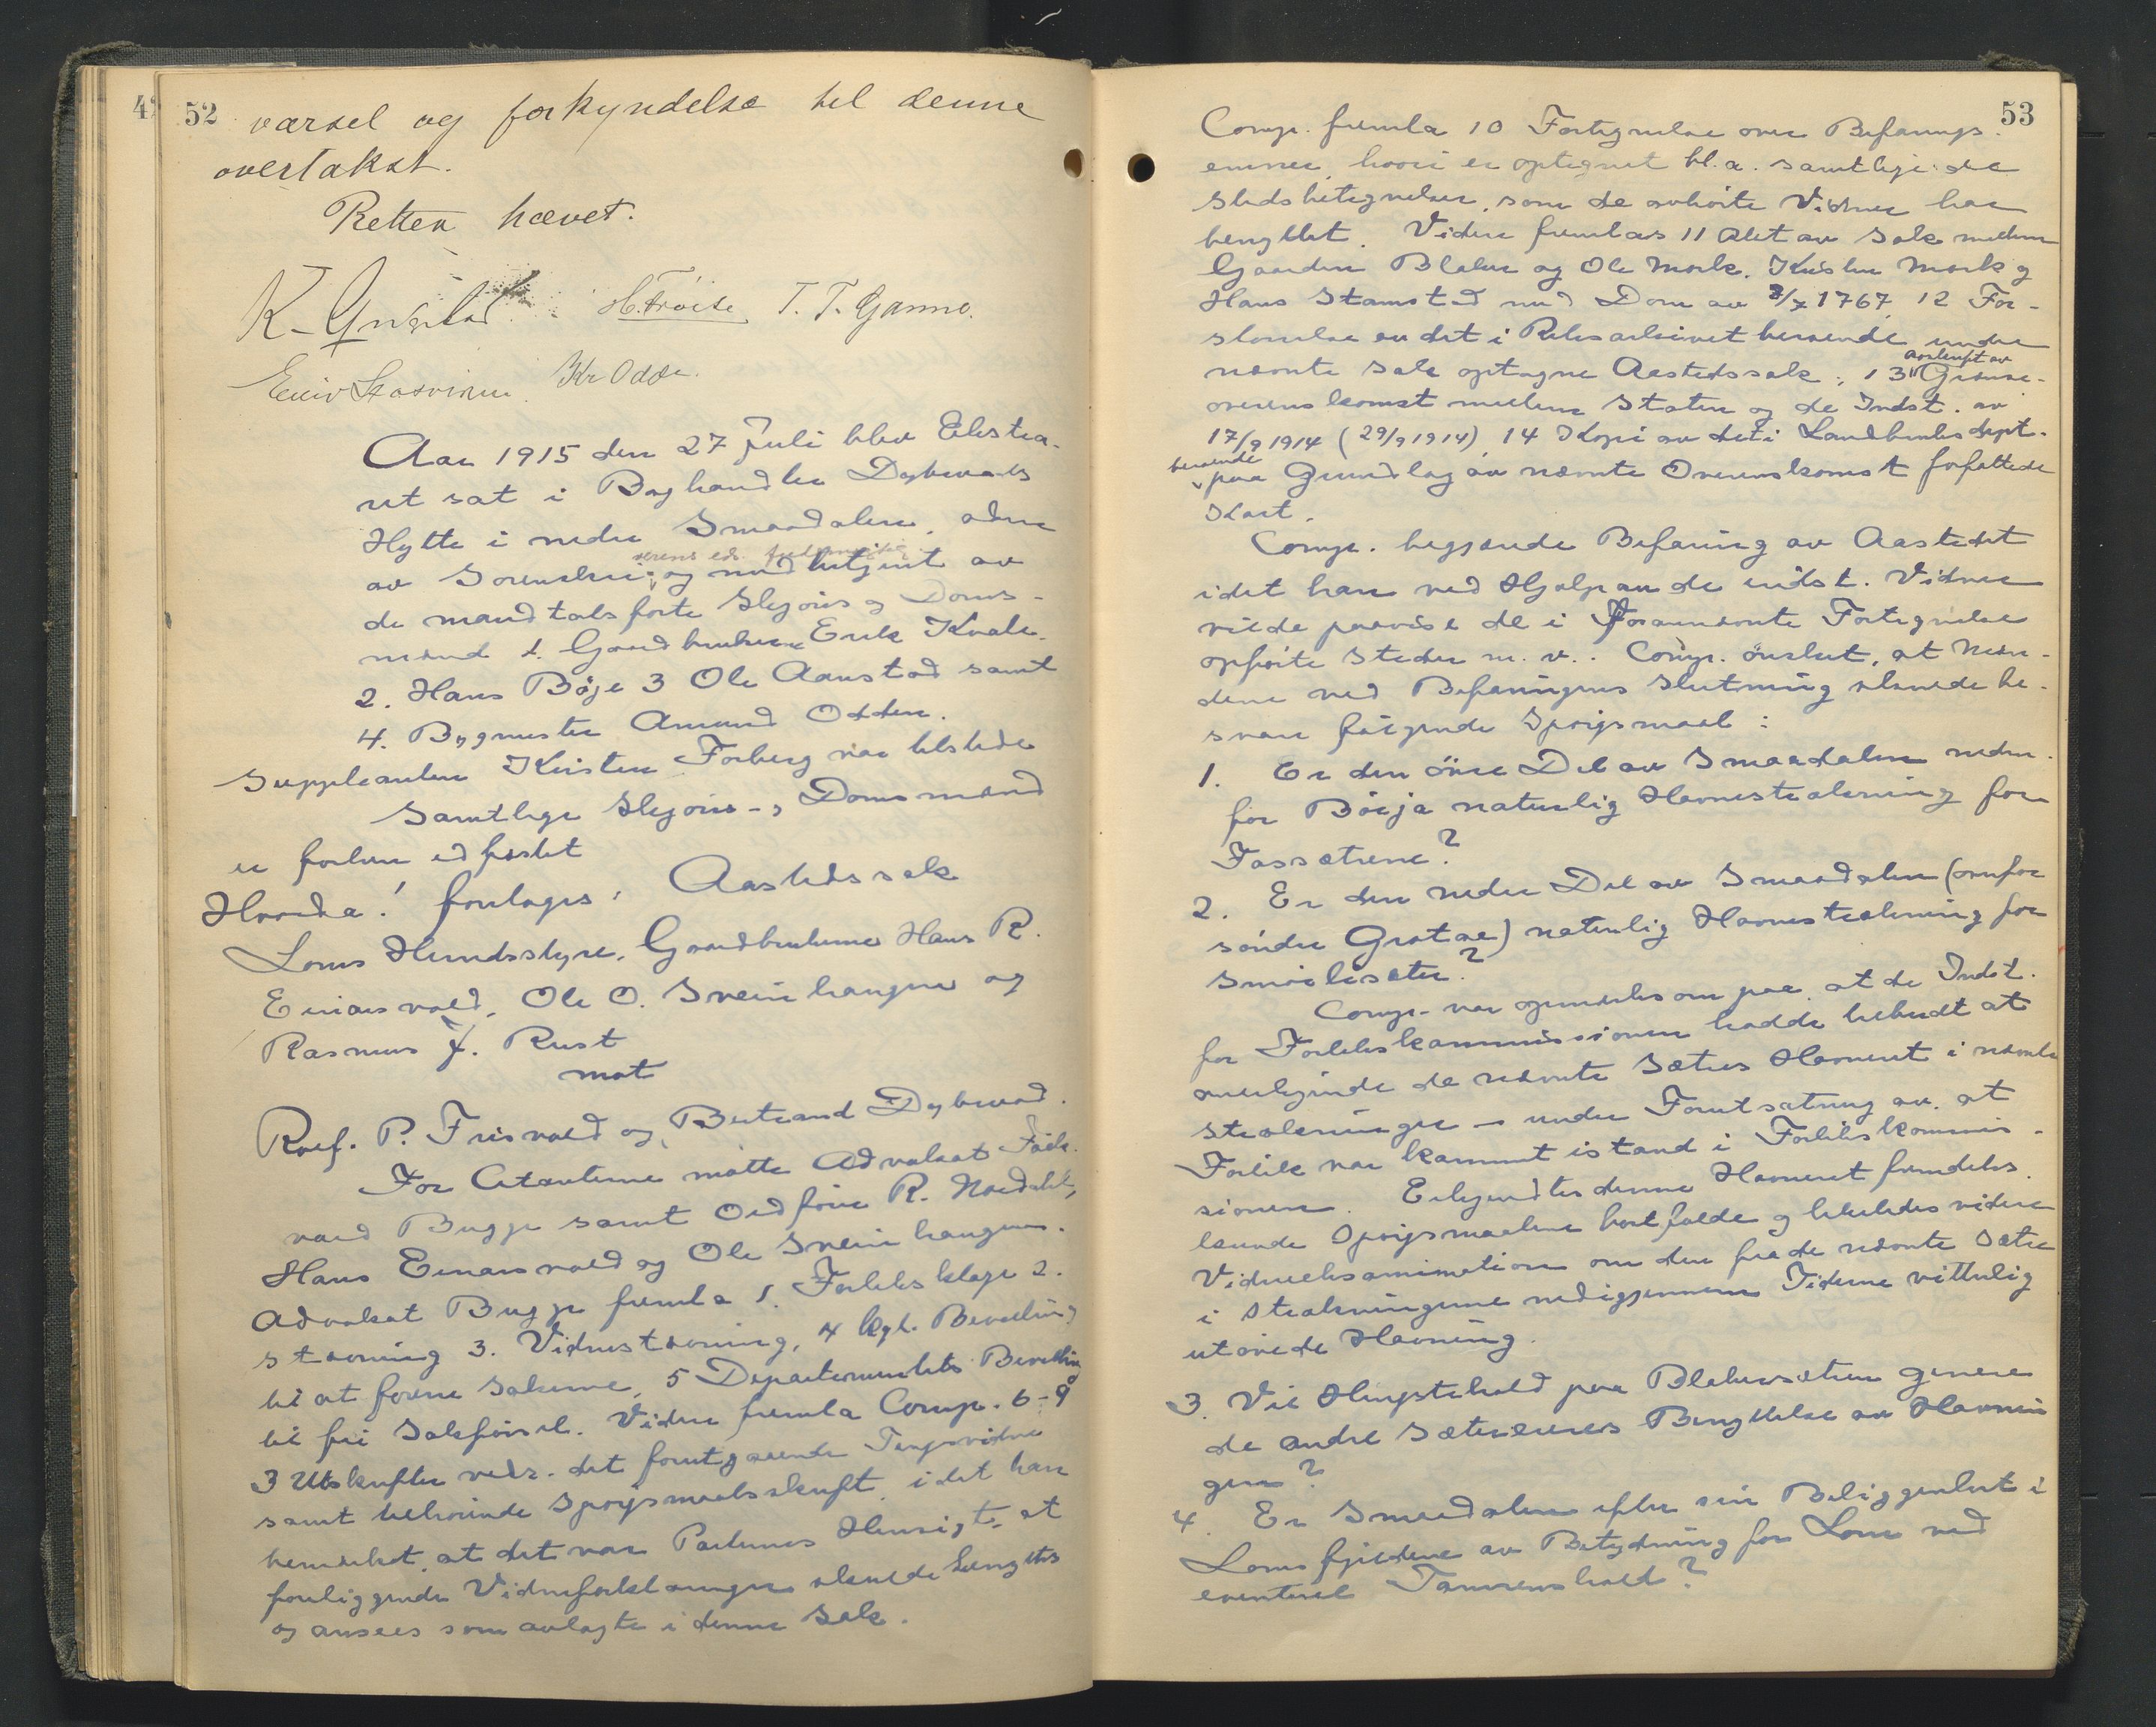 52
varsel og forkyndelse til denne
overtakst.
Retten hævet.
H. Frøise T. T. Garmo.
Kr Odde.
Aar 1915 den 27 Juli blev Ekstra-
ret sat i Boghandler Dybwads
Hytte i nedre Smaadalen, adm
av Sorenskri. og med betjent av
de mandtalsførte Skjøns og Doms-
mænd 1. Gaardbruker Erik Kvale.
2. Hans Bøje 3 Ole Aanstad samt
4. Bygmester Amund Odden.
Suppleanten Kristen Forberg var tilstede
Samtlige Skjøns- og Domsmænd
er forhen edfæstet
Hvorda! foretoges: Aastedssak
Loms Herredsstyre, Gaardbrukerne Hans R.
Einarsvold, Ole O. Sveinhaugen og
Rasmus J. Rust
mot
Prof. P. Frisvold og Bertrand Dybwad.
For Citanterne møtte Advokat Fred.
vard Bugge samt Ordfører R. Nordahl,
Hans Einarsvold og Ole Sveinhaugen.
Advokat Bugge fremla 1. Forliksklage 2.
stævning 3. Vidnestævning, 4 kgl. Bevilling
til at forene Sakerne, 5 Departementets Bevilling
til fri Sakførsel. Videre fremla Comp. 6-9
3 Utskrifter vedr. det forutgaaende Tingsvidne
samt tilhørende Spørgsmaalsskrift, idet han
bemærket, at det var Parternes Hensigt, at
foreliggende Vidneforklaringer skulde
og ansees som avlagte i denne Sak.
53
Comp. fremla 10 Fortegnelse over Befarings-
emner, hvori er optegnet bl.a. samtlige de
Stedsbetegnelser, som de avhørte Vidner har
benyttet. Videre fremlas 11 Akt av Sak mellem
Gaarden Blaker og Ole Mork, Kristen Mork og
Hans Stamstad med Dom av 8/7 1767, 12 For-
størrelse av det i Riksarkivet beroende under
nævnte Sak optagne Aastedssak; 13 avskrift av Grænse-
overenskomst mellem Staten og de Indst. av
17/9 1914 (29/9 1914), 14 Kopi av det i Landbruksdept.
beroende paa Grundlag av nævnte Overenskomst forfattede
Kart.
Comp. begjærede Befaring av Aastedet
idet han ved Hjælp av de indst. Vidner
vilde paavise de i forannævnte Fortegnelse
opførte Steder m. v.. Comp. ønsket, at Mæn-
dene ved Befaringens Slutning skulde be-
svare følgende Spørgsmaal:
1. Er den øvre Del av Smaadalen neden-
for Børja naturlig Havnestrækning for
Fossætrene?
2. Er den nedre Del av Smaadalen (ovnfor
søndre Grotaa) naturlig Havnestrækning for
Smørlisæter?
Comp. var opmerksom paa, at de Indst.
for Forlikskommissionen hadde tilbudt at
anerkjende de nævnte Sætres Havneret i nævnte
Strækninger – under Forutsætning av at
Forlik var kommet istand i Forlikskommis-
sionen. Erkjendtes denne Havneret fremdeles
kunde Spørgsmaalene bortfalde og likeledes videre
Vidneeksamination om den fra de nævnte Sætre
i Strækningerne nedigjennem Tiderne vitterlig
utøvede Havning.
3. Vil Hingstehold paa Blakersætren genere
de andre Sætereieres Benyttelse av Havnin
gen?
4. Er Smaadalen efter sin Beliggenhet i
Lomsfjeldene av Betydning for Lom ved
eventuel Tamrenshold?